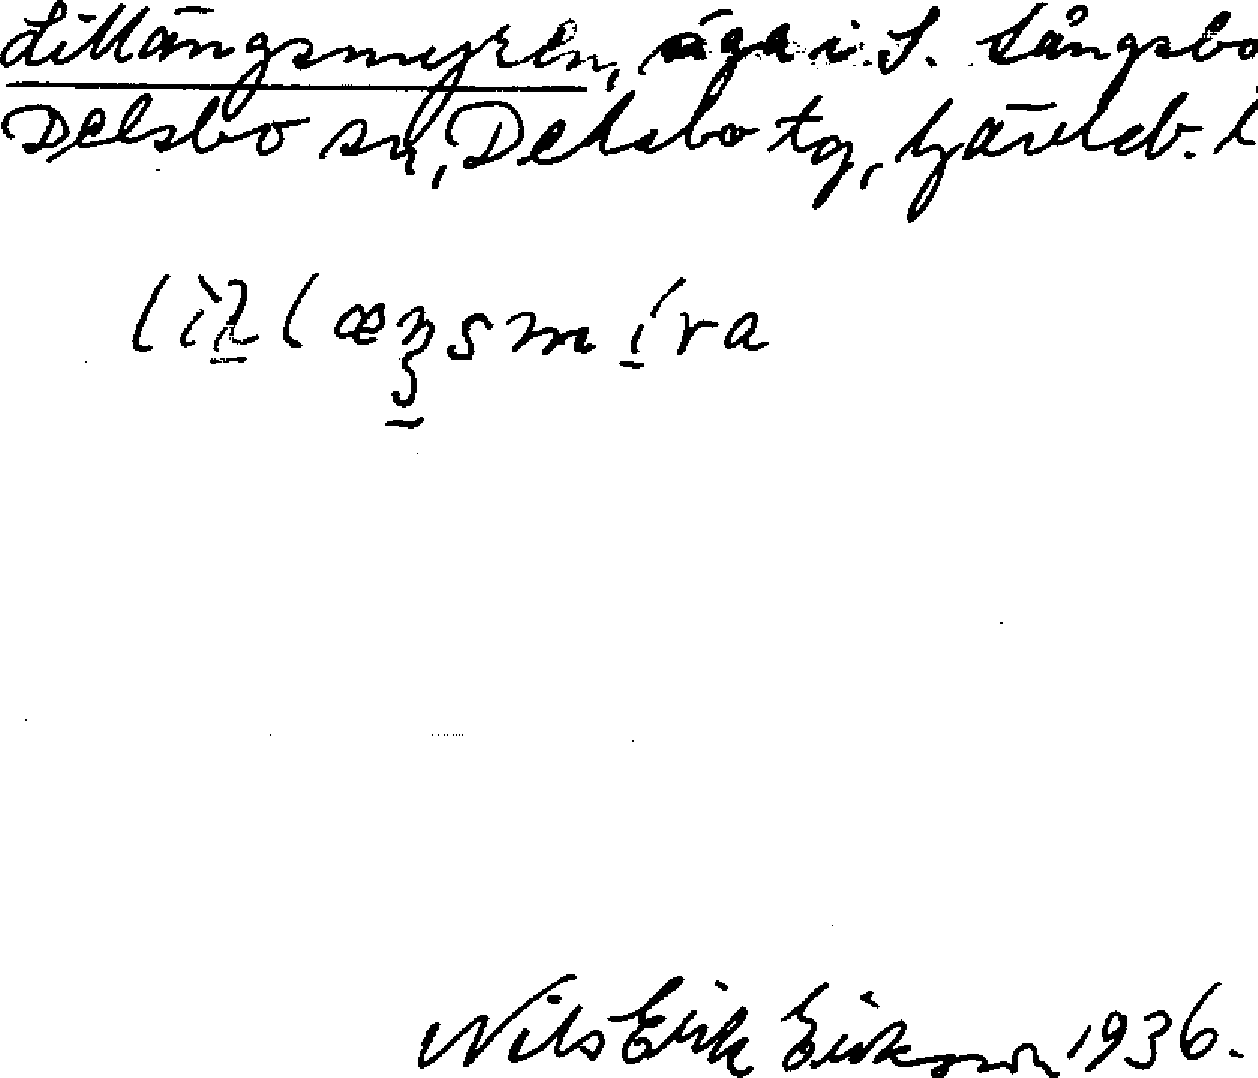 Lillängsmyren, äga i S. Långsbo
Delsbo sn, Delsbo tg, Gävleb. l
Nils Erik Erikson 1936.